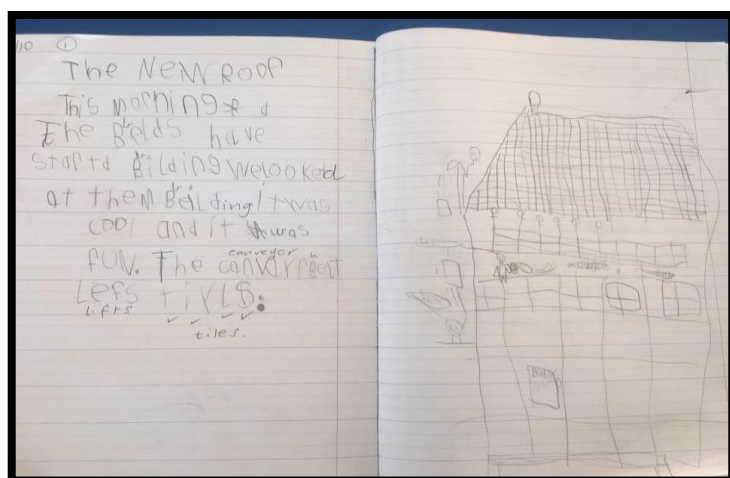 10 ①
The NeW ROOF
This morning
The Beilds have
startd Bilding welooked
at them Beilding! it was
cool and it was
fUN. The convirrBelt
conveyor
Lefs tirls.
lifts
tiles.